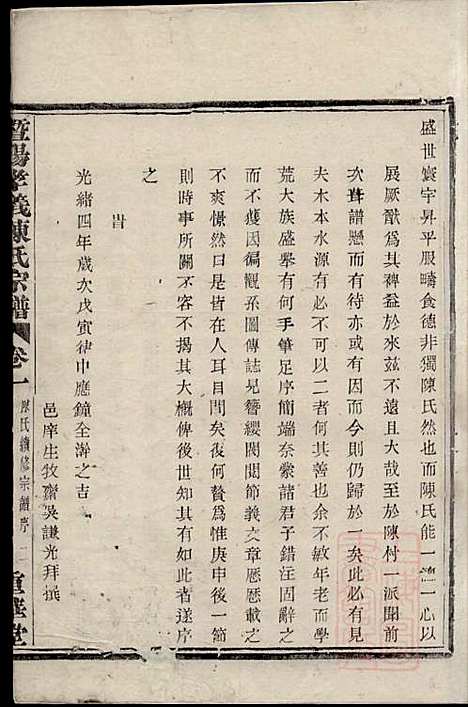 盛世寰宇昇平服疇食德非獨陳氏然也而陳氏能一護一心以
展厥猷為其裨益於來茲不遠且大哉至於陳村一派聞前
次聱譜懸而有待亦或有因而今則仍歸於一矣此必有見
夫木本水源有必不可以二者何其善也余不敏年老而學
荒大族盛舉有何手筆足序簡端奈蒙諸君子錯注固辭之
而不獲因徧觀系圖傳誌見簪纓閥閱節義文章懕懕載之
不爽憬然曰是皆在人耳目間矣復何贅為惟庚申後一節
則時事所關不容不揭其大概俾後世知其有如此者遂序
之
旹
光緒四年歲次戊寅律中應鐘全澣之吉
邑庠生牧齋吳謙光拜撰
暨陽孝義陳氏宗譜
卷一
陳氏續修宗譜序
二
重華堂